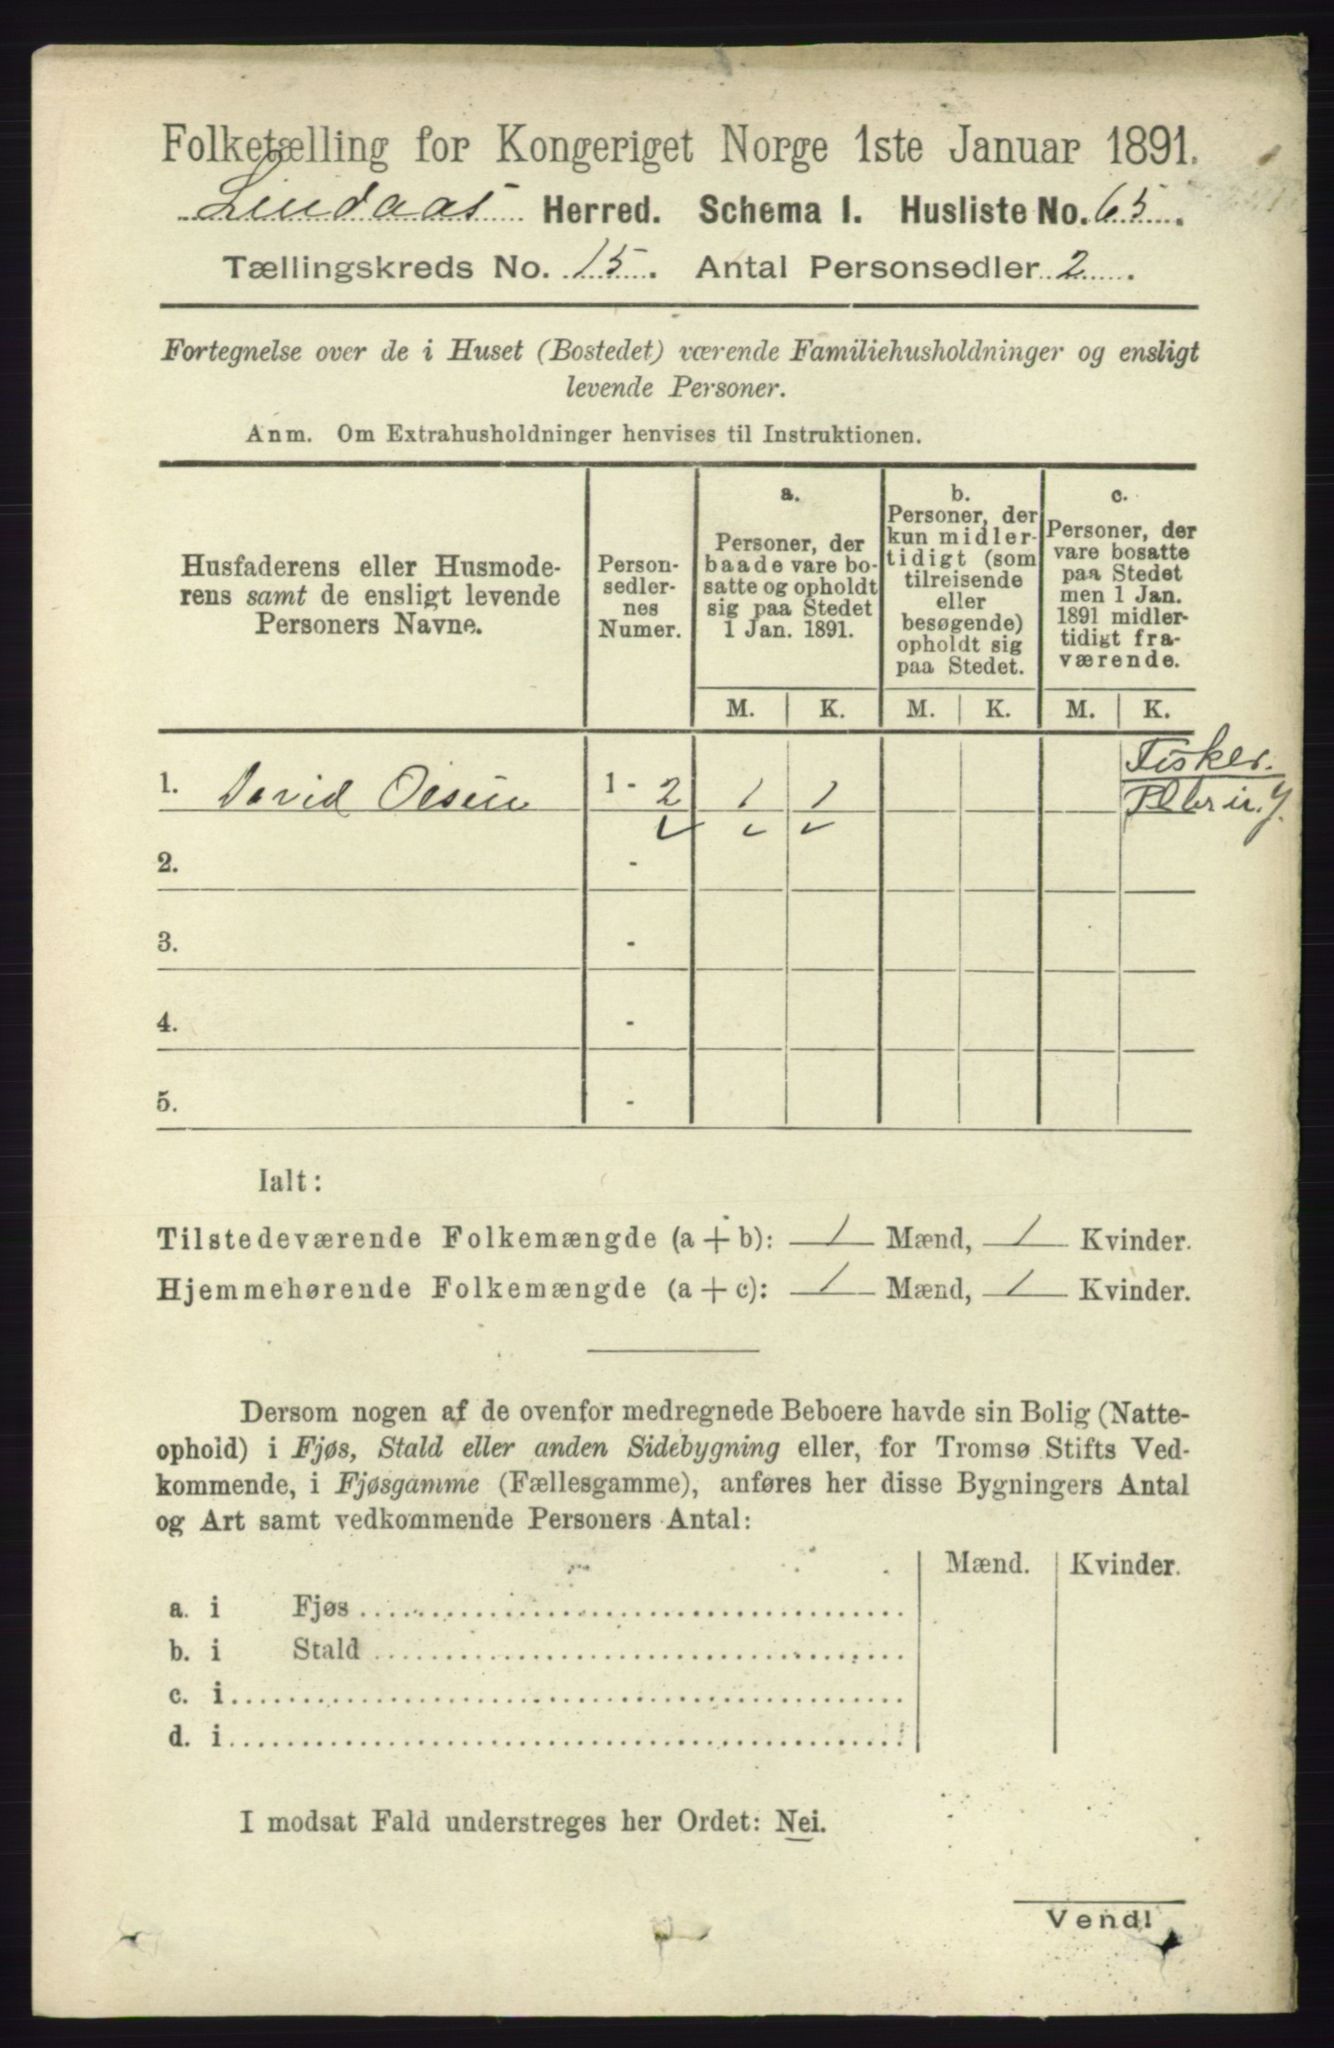 Folketælling for Kongeriget Norge 1ste Januar 1891.
Lindaas Herred. Schema I. Husliste No. 65.
Tællingskreds No. 15. Antal Personsedler 2.
Fortegnelse over de i Huset (Bostedet) værende Familiehusholdninger og ensligt
levende Personer.
Anm. Om Extrahusholdninger henvises til Instruktionen.
Husfaderens eller Husmode-
rens samt de ensligt levende
Personers Navne.
Person-
sedler-
nes
Numer.
a.
Personer, der
baade vare bo-
satte og opholdt
sig paa Stedet
1 Jan. 1891.
b.
Personer, der
kun midler-
tidigt (som
tilreisende
eller
besøgende)
opholdt sig
paa Stedet.
c.
Personer, der
vare bosatte
paa Stedet
men 1 Jan.
1891 midler-
tidigt fra-
værende.
M. K. M. K. M. K.
1. David Olsen 1 - 2 1 1 Fisker.
2. -
3. -
4. -
5. -
Ialt:
Tilstedeværende Folkemængde (a + b): 1 Mænd, 1 Kvinder.
Hjemmehørende Folkemængde (a + c): 1 Mænd, 1 Kvinder.
Dersom nogen af de ovenfor medregnede Beboere havde sin Bolig (Natte-
ophold) i Fjøs, Stald eller anden Sidebygning eller, for Tromsø Stifts Ved-
kommende, i Fjøsgamme (Fællesgamme), anføres her disse Bygningers Antal
og Art samt vedkommende Personers Antal:
Mænd. Kvinder.
a. i Fjøs
b. i Stald
c. i
d. i
I modsat Fald understreges her Ordet: Nei.
Vend!